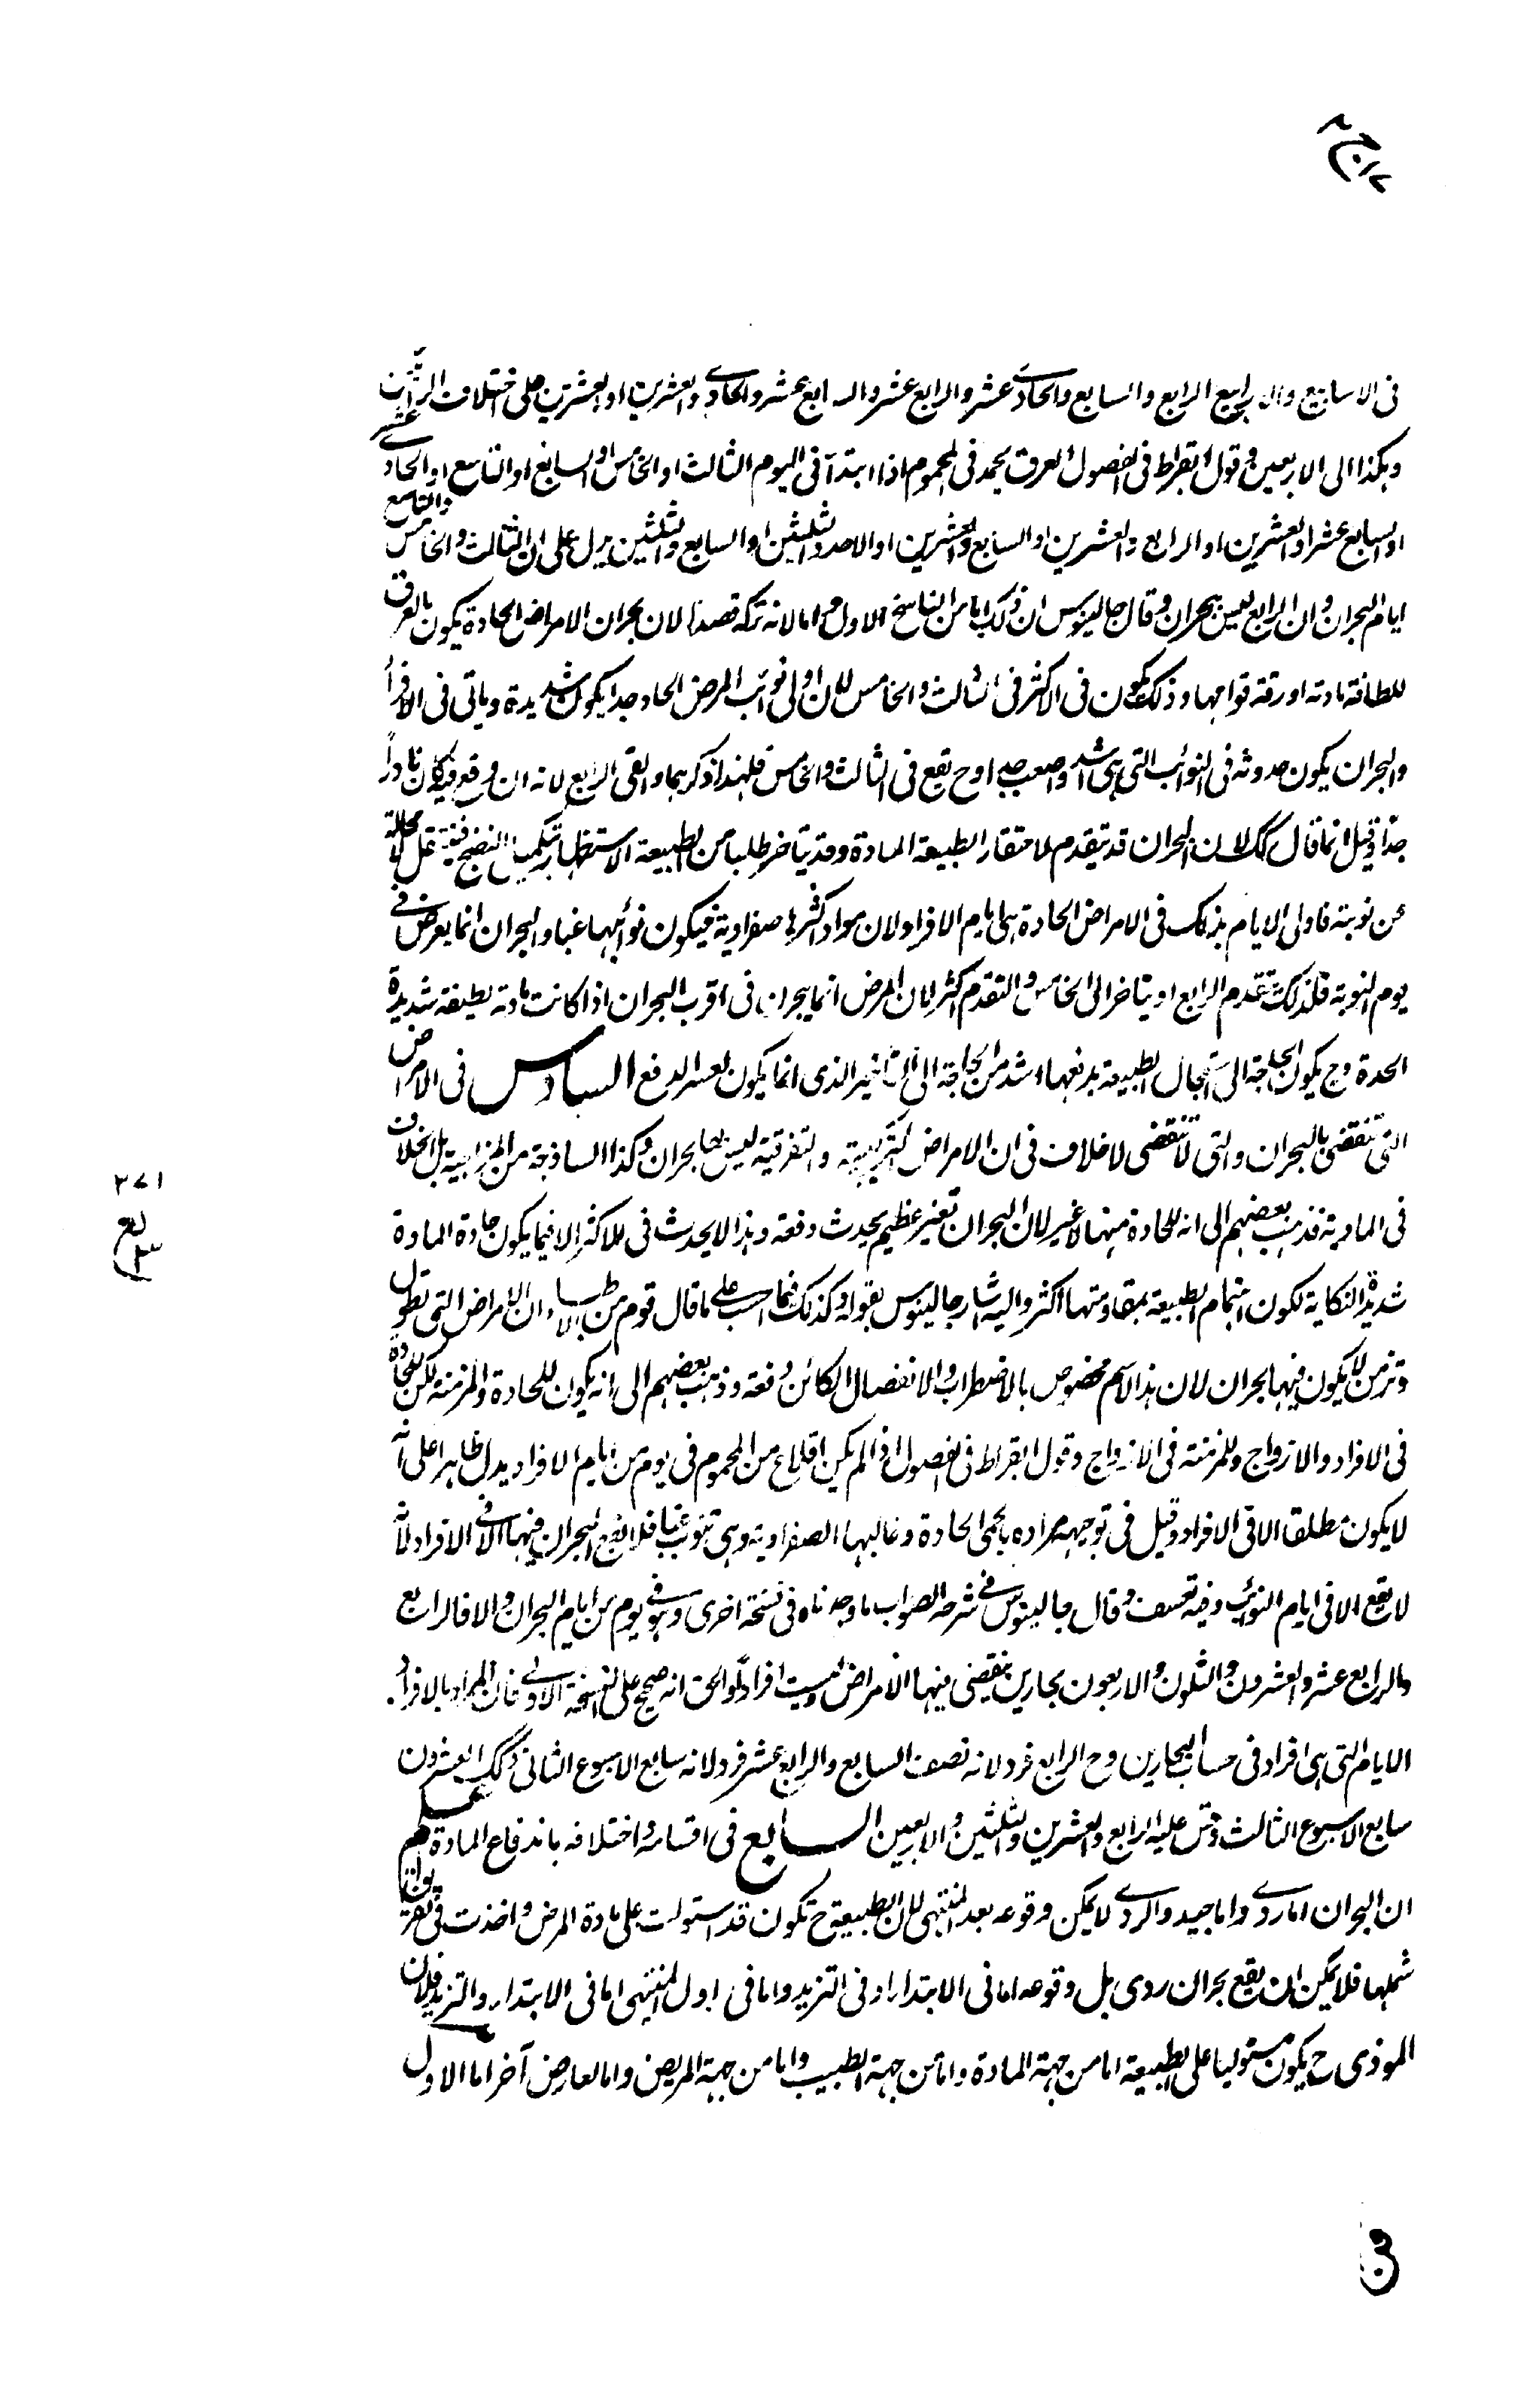 فى الاسابيع والرابيع الرابع والسابع والحادى عشر والرابع عشر والسابع عشر والحادى والعشرين او العشرين على اختلاف الرأين
وهكذا الى الاربعين وقول ابقراط فى الفصول العرق يحمد فى المحموم اذا ابتدأ فى اليوم الثالث او الخامس او السابع او التاسع او الحادى عشر
او السابع عشر او العشرين او الرابع والعشرين او السابع والعشرين او الاحد والثلثين او السابع والثلثين يدل على ان الثالث والخامس والتاسع
ايام البحران وان الرابع ليس ببحران وقال جالينوس ان ذلك اما من الناسخ الاول واما لانه تركه قصدا لان بحران الامراض الحادة يكون بالعرق
للطافة مادته او رقة قوامها وذلك يكون فى الاكثر فى الثالث والخامس لان اولى نوائب المرض الحاد جدا يكون شديدة وياتى فى الافراد
والبحران يكون حدوثه فى النوائب التى هى اشد واصعب جدا وح تقع فى الثالث والخامس فلهذا ذكرهما والقى الرابع لانه ان وقع فيه كان نادرا
جدا وقيل انما قال كك لان البحران قد يتقدم لاحتقار الطبيعة المادة وقد يتاخر طلبا من الطبيعة الاستظهار بتكميل النضج فينتقل لا محالة
عن نوبة فاولى الايام بذلك فى الامراض الحادة هى ايام الافراد لان مواد اكثرها صفراوية فيكون نوائبها غبا والبحران انما يعرض فى
يوم النوبة فلذلك تقدم الرابع او يتاخر الى الخامس والتقدم اكثر لان المرض انما يبحرن فى اقرب البحران اذا كانت مادته لطيفة شديدة
الحدة وح يكون الحاجة الى استعجال الطبيعة بدفعها اشد من الحاجة الى التاخير الذى انما يكون لعسر الدفع السادس فى الامراض
التى تنقضى بالبحران والتى لا تنقضى لا خلاف فى ان الامراض التركيبية والتفرقية ليس لها بحران وكذا الساذجة من المزاجية بل الخلاف
فى المادية فذهب بعضهم الى انه للحادة منها لا غير لان البحران تغير عظيم يحدث دفعة وهذا لا يحدث فى الاكثر الا فيما يكون حادة المادة
شديدة النكاية لكون اهتمام الطبيعة بمقاومتها اكثر واليه اشار جالينوس بقوله وكذلك فيما احسب على ما قال قوم من الاطباء ان الامراض التى تطول
وتزمن لا يكون فيها بحران لان هذا الاسم مخصوص بالاضطراب والانفصال الكائن دفعة وذهب بعضهم الى انه يكون للحادة والمزمنة لكن للحادة
فى الافراد والازواج وللمزمنة فى الازواج وقول ابقراط فى الفصول اذا لم يكن اقلاع من المحموم فى يوم من ايام الافراد يدل ظاهرا على انه
لا يكون مطلقا الا فى الافراد وقيل فى توجيهه مراده بالحمى الحادة وغالبها الصفراوية وهى تنوب غبا فلا يقع البحران فيها الا فى الافراد لانه
لا يقع الا فى ايام النوائب وفيه تعسف وقال جالينوس فى شرحه الصواب ما وجدناه فى نسخة اخرى وهو فى يوم من ايام البحران والا فالرابع
والرابع عشر والعشرون والثلثون والاربعون بحارين ينقضى فيها الامراض وليست افرادا والحق انه صحيح على النسخة الاولى فان المراد بالافراد
الايام التى هى افراد فى حساب البحارين وح الرابع فرد لانه نصف السابع والرابع عشر فرد لانه سابع الاسبوع الثانى وكك العشرون
سابع الاسبوع الثالث وقس عليه الرابع والعشرين والثلثين والاربعين السابع فى اقسامه واختلافه باندفاع المادة اعلم
ان البحران اما ردى واما جيد والردى لا يمكن وقوعه بعد المنتهى لان الطبيعة ح تكون قد استولت على مادة المرض واخذت فى تفريق
شملها فلا يمكن ان يقع بحران ردى بل وقوعه اما فى الابتدا او فى التزيد واما فى اول المنتهى اما فى الابتداء والتزيد فلان
الموذى ح يكون مستوليا على الطبيعة اما من جهة المادة واما من جهة الطبيب واما من جهة المريض واما لعارض آخر اما الاول
٣٧١